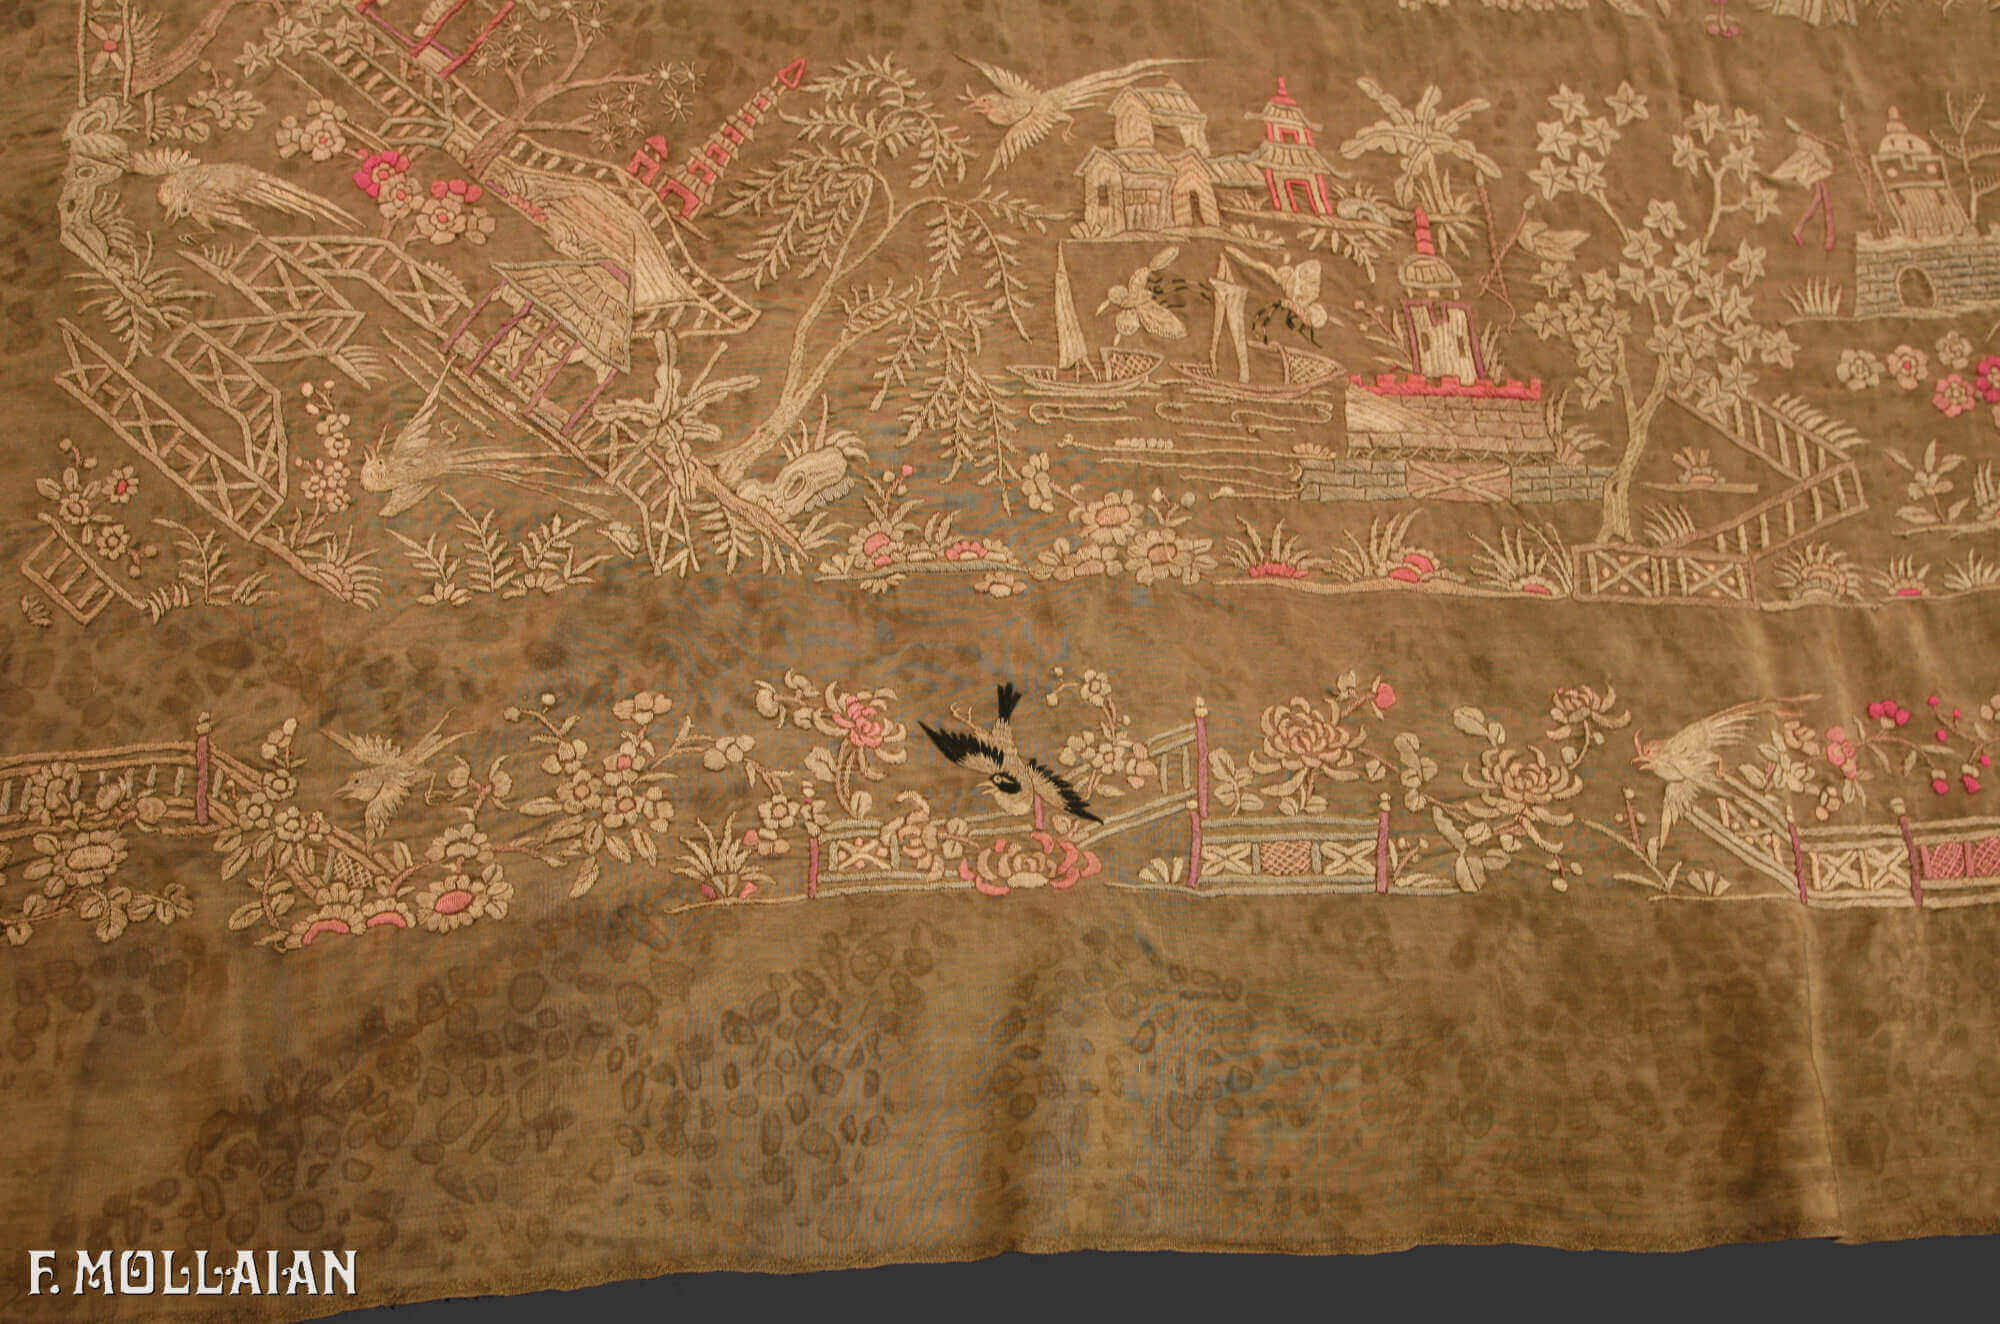 F. MOLLAIAN